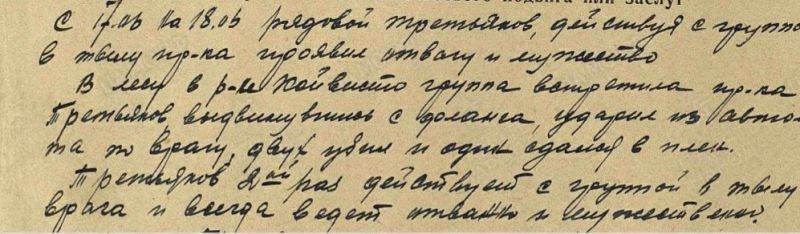 подвига или заслуг
С 17.06 на 18.06 рядовой Третьяков, действуя с группо
в тылу пр-ка проявил отвагу и мужество
В лесу в р-не Койвисто группа встретила пр-ка
Третьяков выдвинувшись с фланга, ударил из автом
та по врагу, двух убил и один сдался в плен.
Третьяков 2ой раз действует с группой в тылу
врага и всегда ведет отважно и мужественно.